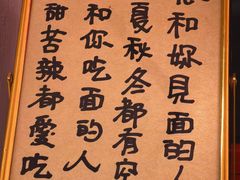 和妳見面的人
夏秋冬都有空
和你吃面的人
甜苦辣都愛吃